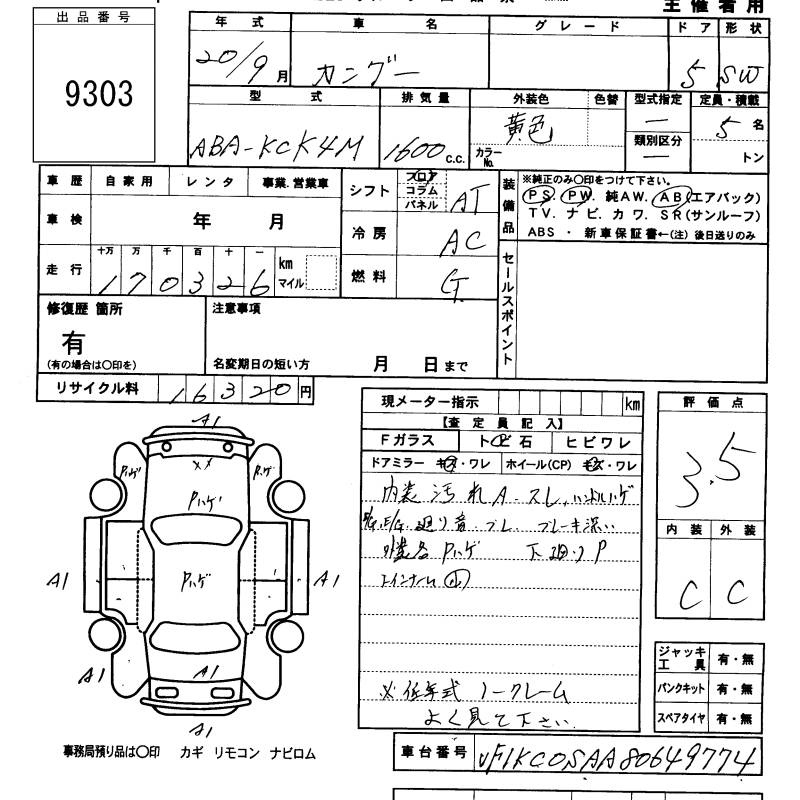 主催者用
出品番号
9303
年式 車名 グレード ドア 形状
20/9月 カングー 5 SW
型式 排気量 外装色 色替 型式指定 定員・積載
ABA-KCK4M 1600 c.c. 黄色 カラーNo. 類別区分 5名
トン
車歴 自家用 レンタ 事業.営業車
シフト フロア コラム パネル AT
装備品 ※純正のみ〇印をつけて下さい。
PS. PW. 純AW. AB(エアバック)
TV. ナビ. カワ. SR(サンルーフ)
ABS ・ 新車保証書←(注) 後日送りのみ
車検 年 月
冷房 AC
走行 十万 万 千 百 十 一
170326 km マイル
燃料 G
セールスポイント
修復歴 箇所 注意事項
有
(有の場合は〇印を) 名変期日の短い方 月 日まで
リサイクル料 16320円
現メーター指示 km
【査定員記入】
Fガラス トビ石 ヒビワレ
ドアミラー キズ・ワレ ホイール(CP) キズ・ワレ
内装 汚れ A・スレ、ハンドルハゲ
廻り音 ブレ ブレーキ深い
Pハゲ 下廻り P
※低年式 ノークレーム
よく見て下さい
評価点
3.5
内装 外装
C C
ジャッキ工具 有・無
パンクキット 有・無
スペアタイヤ 有・無
A1
××
Pハゲ Pハゲ Pハゲ
Pハゲ
A1 A1
A1 A1
A1
事務局預り品は〇印 カギ リモコン ナビロム
車台番号 VF1KC0SAA80649774